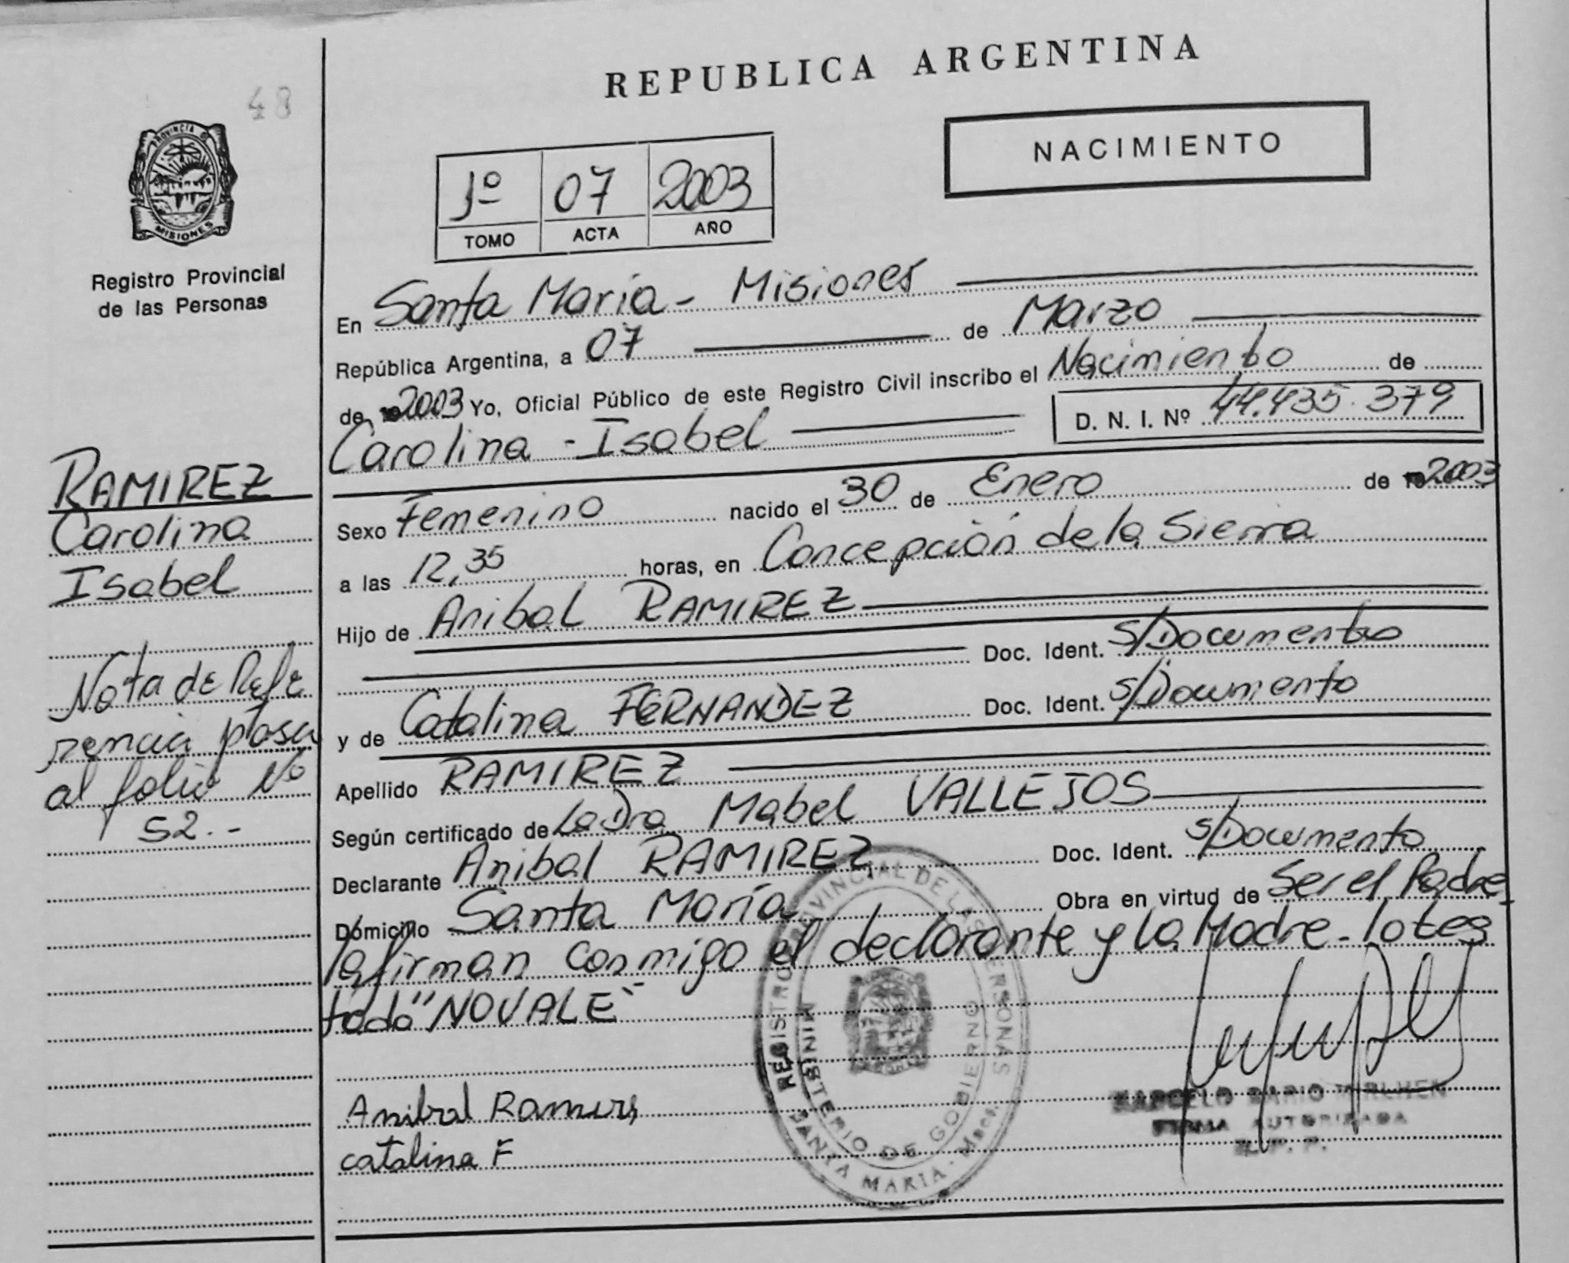 48
REPUBLICA ARGENTINA
PROVINCIA DE
MISIONES
Registro Provincial
de las Personas
NACIMIENTO
1º 07 2003
TOMO ACTA AÑO
En Santa María - Misiones
República Argentina, a 07 de Marzo
de 2003 Yo, Oficial Público de este Registro Civil inscribo el Nacimiento de
Carolina - Isabel D. N. I. Nº 44.435.379
RAMIREZ
Carolina
Isabel
Nota de Refe
rencia pasa
al folio Nº
52.-
Sexo Femenino nacido el 30 de Enero de 2003
a las 12,35 horas, en Concepción de la Sierra
Hijo de Anibal RAMIREZ
Doc. Ident. S/Documento
y de Catalina FERNANDEZ Doc. Ident. S/Documento
Apellido RAMIREZ
Según certificado de La Dra Mabel VALLEJOS
Declarante Anibal RAMIREZ Doc. Ident. S/Documento
Domicilio Santa María Obra en virtud de Ser el Padre
lafirman conmigo el declarante y la Madre - lo tes
tado "NO VALE"
Anibal Ramires
catalina F
REGISTRO PROVINCIAL DE LAS PERSONAS
MINISTERIO DE GOBIERNO
SANTA MARIA - Mnes.
MARCELO DARIO
FIRMA AUTORIZADA
R. P. P.